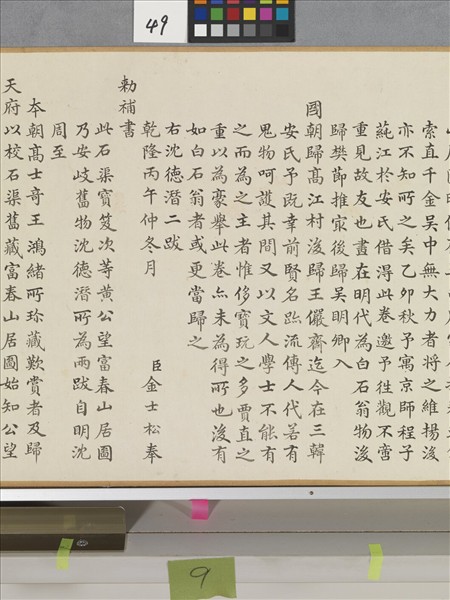 49
索直千金吳中無大力者將之維揚後
亦不知所之矣乙夘秋予寓京師程子
蒓江於安氏借得此卷邀予往觀不啻
重見故友也畫在明代為白石翁物後
歸樊節推家後歸吳明卿入
國朝歸高江村後歸王儼齋迄今在三韓
安氏予既幸前賢名跡流傳人代若有
鬼物呵護其間又以文人學士不能有
之而為之主者惟侈寶玩之多賈直之
重以為豪舉此卷亦未為得所也後有
如白石翁者或更當歸之
右沈德潛二跋
乾隆丙午仲冬月 臣金士松奉
勅補書
此石渠寶笈次等黃公望富春山居圖
乃安岐舊物沈德潛所為兩跋自明沈
周至
本朝高士奇王鴻緒所珍藏歎賞者及歸
天府以校石渠舊藏富春山居圖始知公望
9